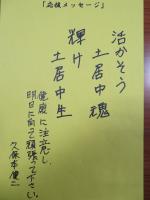 「応援メッセージ」
活かそう
土居中魂
輝け
土居中生
健康に注意し
明日に向って頑張って下さい。
久保本健二